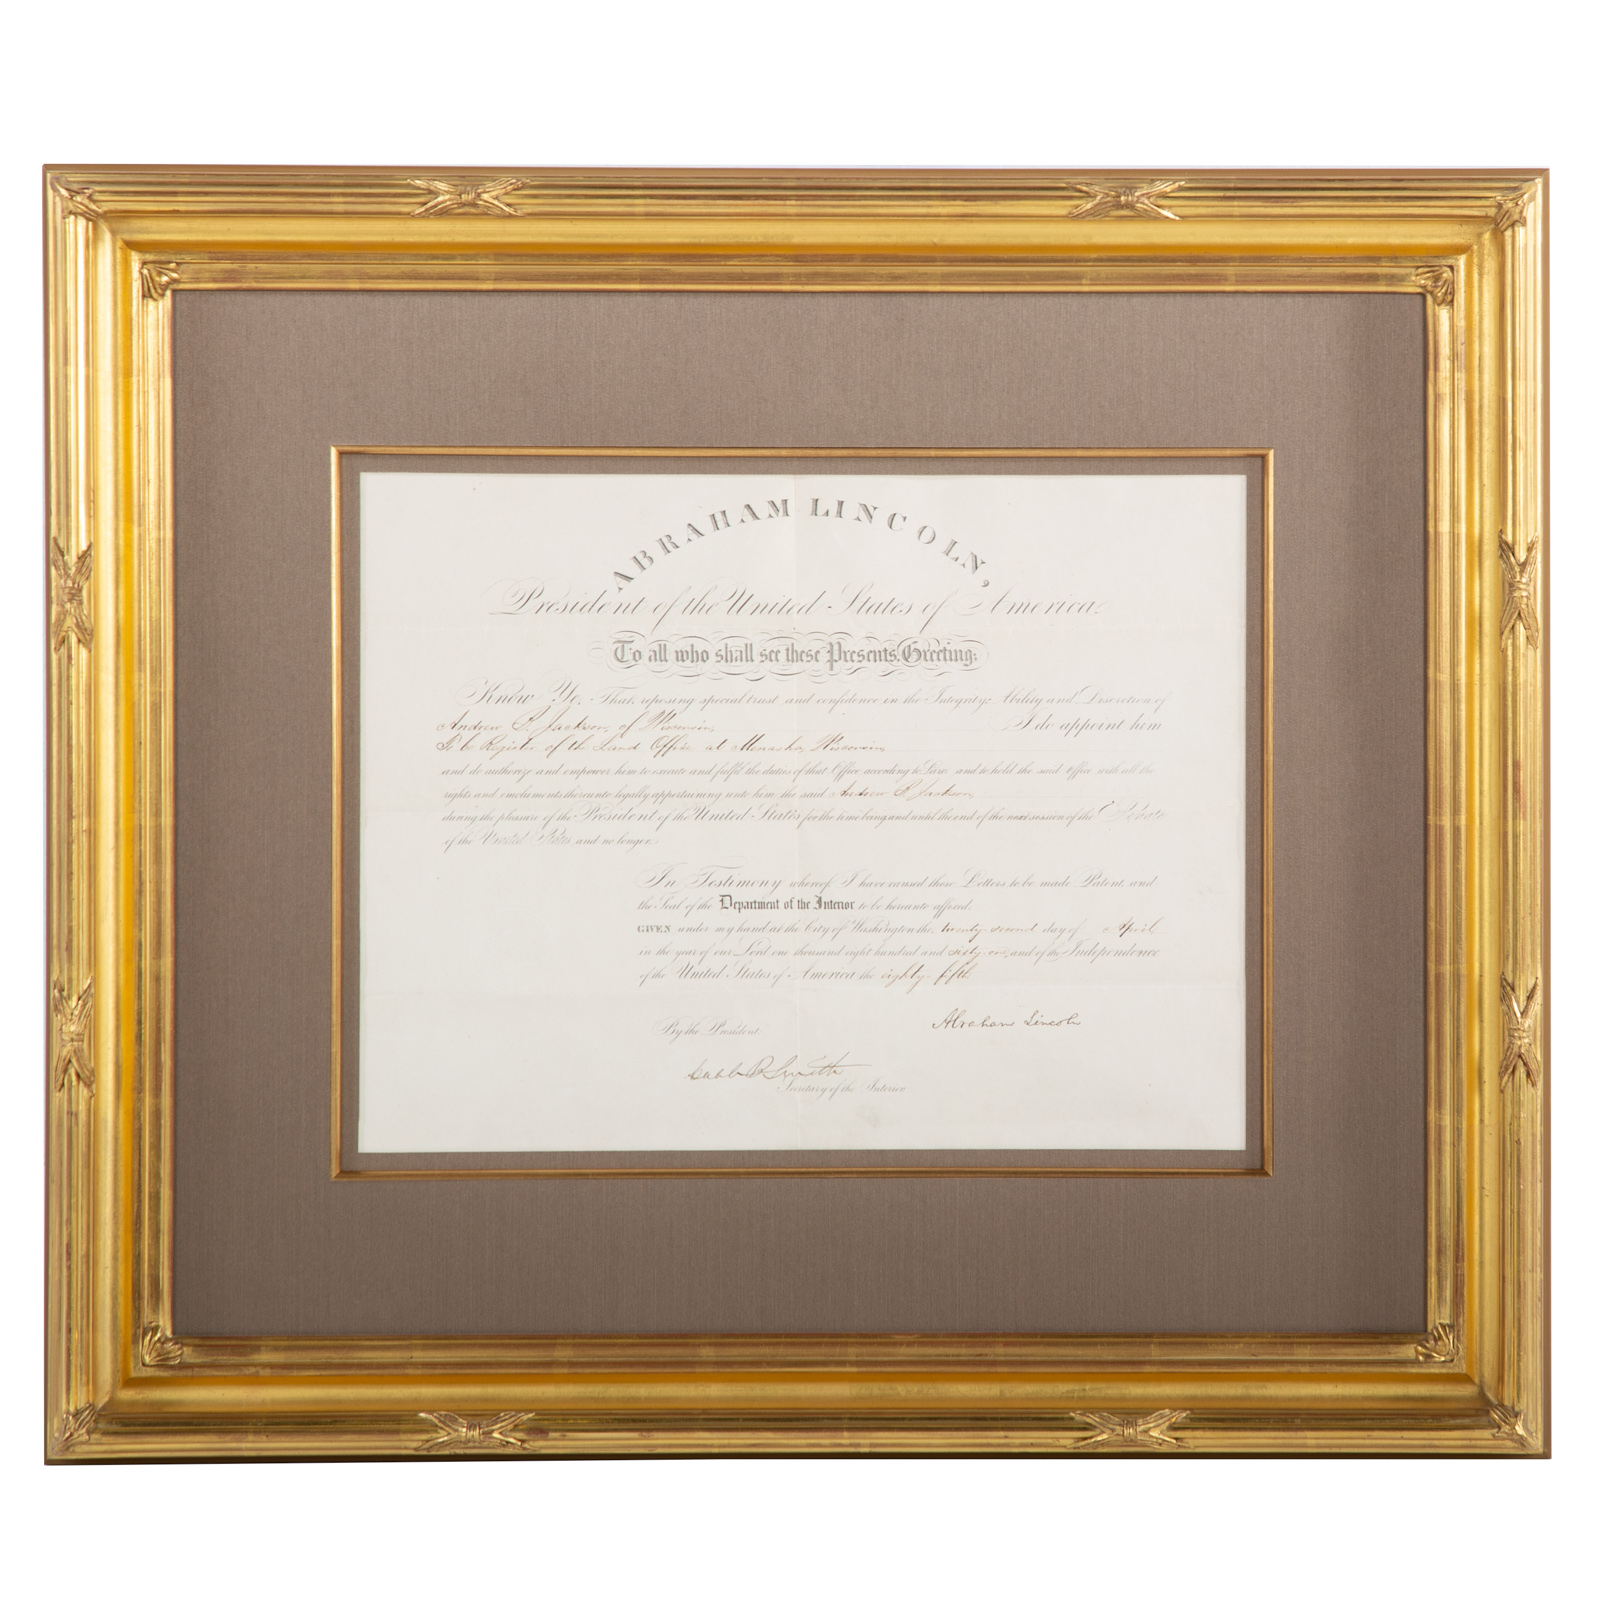 ABRAHAM LINCOLN,
President of the United States of America.
To all who shall see these Presents, Greeting:
Know Ye, That, reposing special trust and confidence in the Integrity, Ability and Discretion of
Andrew P. Jackson, of Wisconsin, I do appoint him
To be Register of the Land Office at Menasha, Wisconsin,
and do authorize and empower him to execute and fulfil the duties of that Office according to Law, and to hold the said office with all the
rights and emoluments thereunto legally appertaining unto him, the said Andrew P. Jackson,
during the pleasure of the President of the United States for the time being, and until the end of the next session of the Senate
of the United States, and no longer.
In Testimony whereof, I have caused these Letters to be made Patent, and
the Seal of the Department of the Interior to be hereunto affixed.
GIVEN under my hand, at the City of Washington the twenty-second day of April
in the year of our Lord one thousand eight hundred and sixty-one, and of the Independence
of the United States of America the eighty-fifth.
By the President. Abraham Lincoln
Caleb B. Smith
Secretary of the Interior